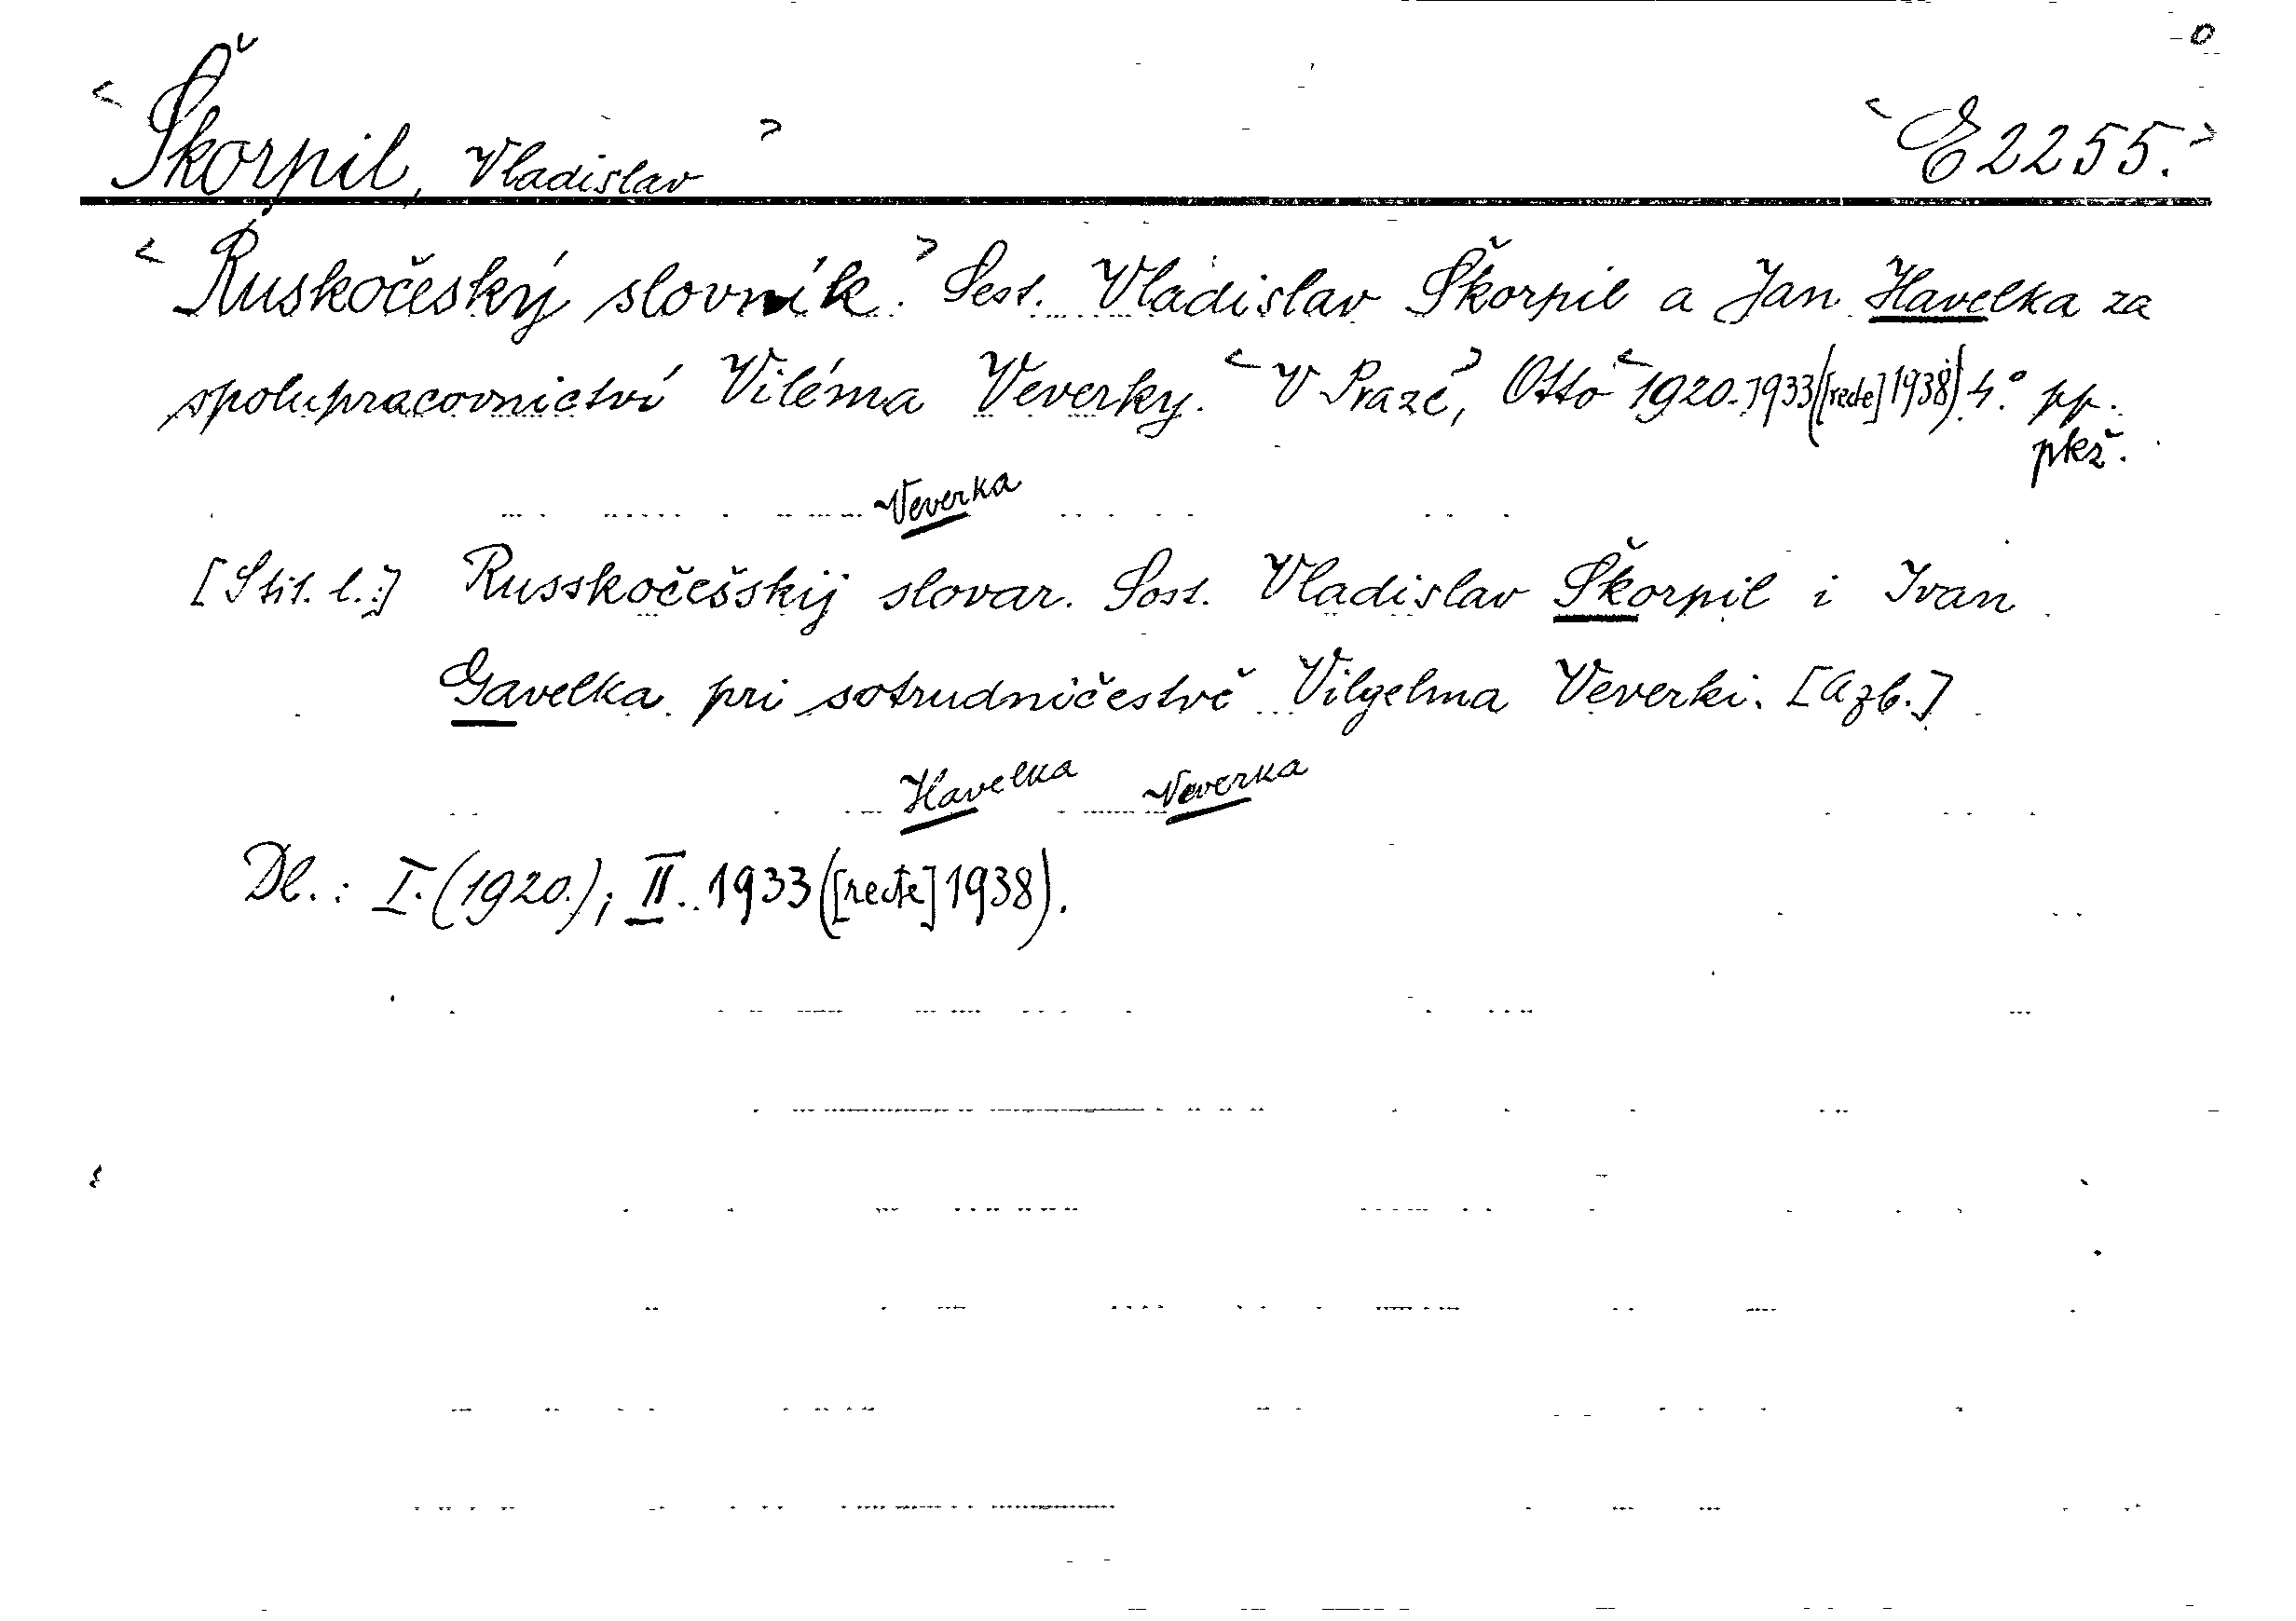 <Škorpil, Vladislav> <E 2255.>
<Ruskočeský slovník.> Sest. Vladislav Škorpil a Jan Havelka za
spolupracovnictví Viléma Veverky. <V Praze>, Otto <1920-1933([recte] 1938) 4.° pp.
pkž.
Veverka
[S tit. l.:] Russkočešskij slovar. Sost. Vladislav Škorpil i Ivan
Gavelka pri sotrudničestvě Vilgelma Veverki. [Azb.]
Havelka Veverka
Dl.: I. (1920.); II. 1933([recte] 1938).